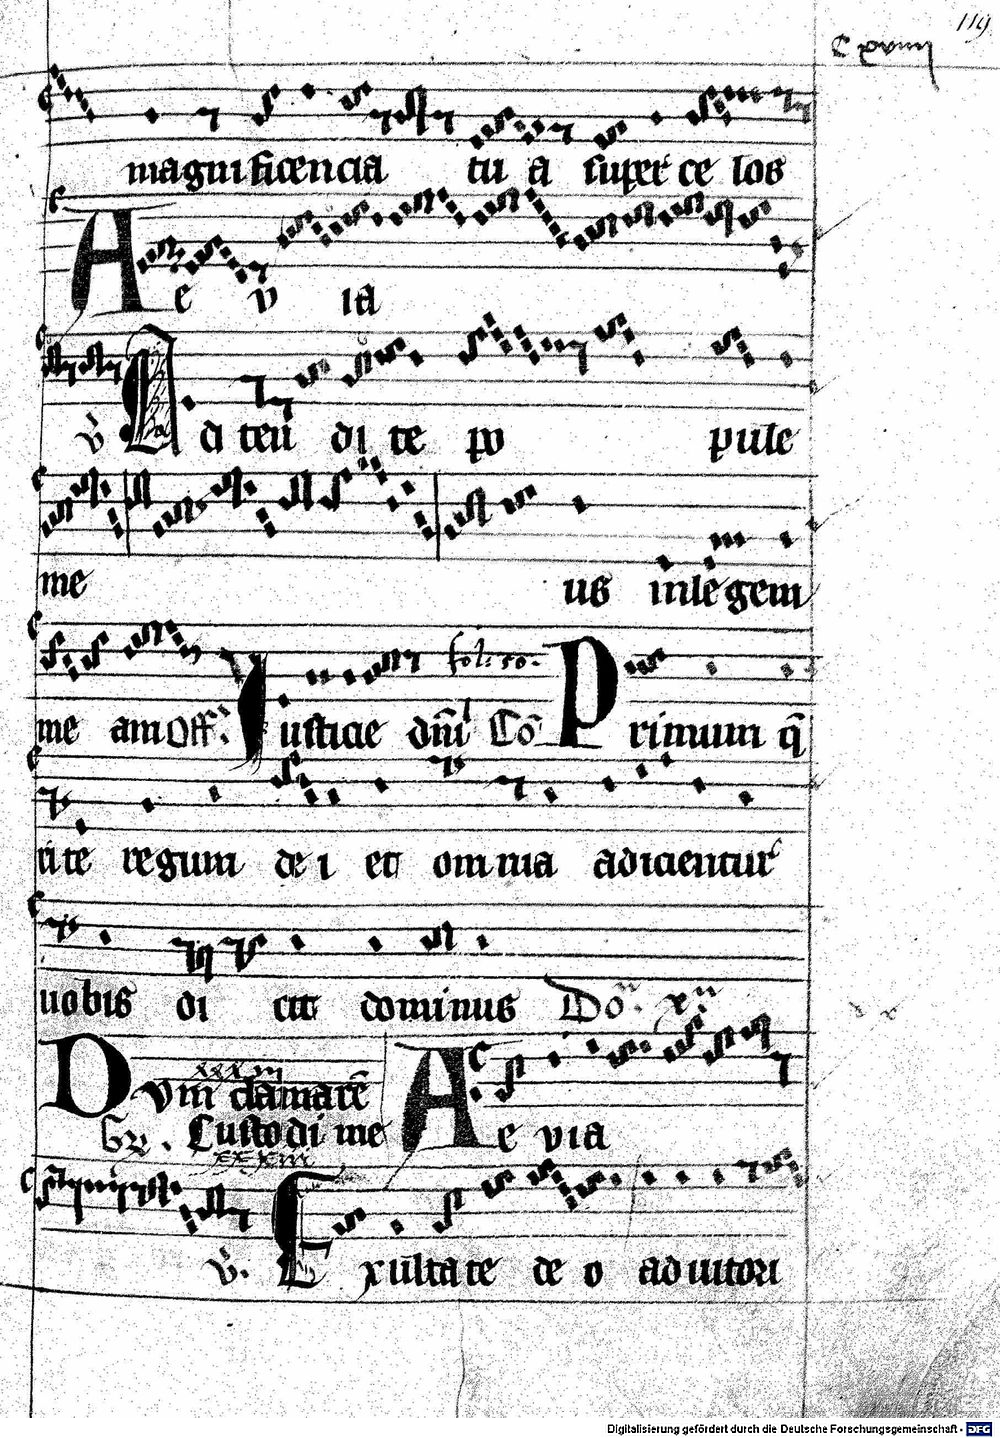 119
C xviiij
magnificencia tu a super ce los
A e v ia
v A di ten di te po pule
me us in le gem
me am Off Iusticie dni fol: 50. Co Primum q̄
ri te regum de i et om nia adicientur
uobis di cit dominus Do x
xxxiii
Dum clamarē A e v i a
Gr. Custodi me
xxxiii
v. Exulta te de o adiutori
Digitalisierung gefördert durch die Deutsche Forschungsgemeinschaft - DFG